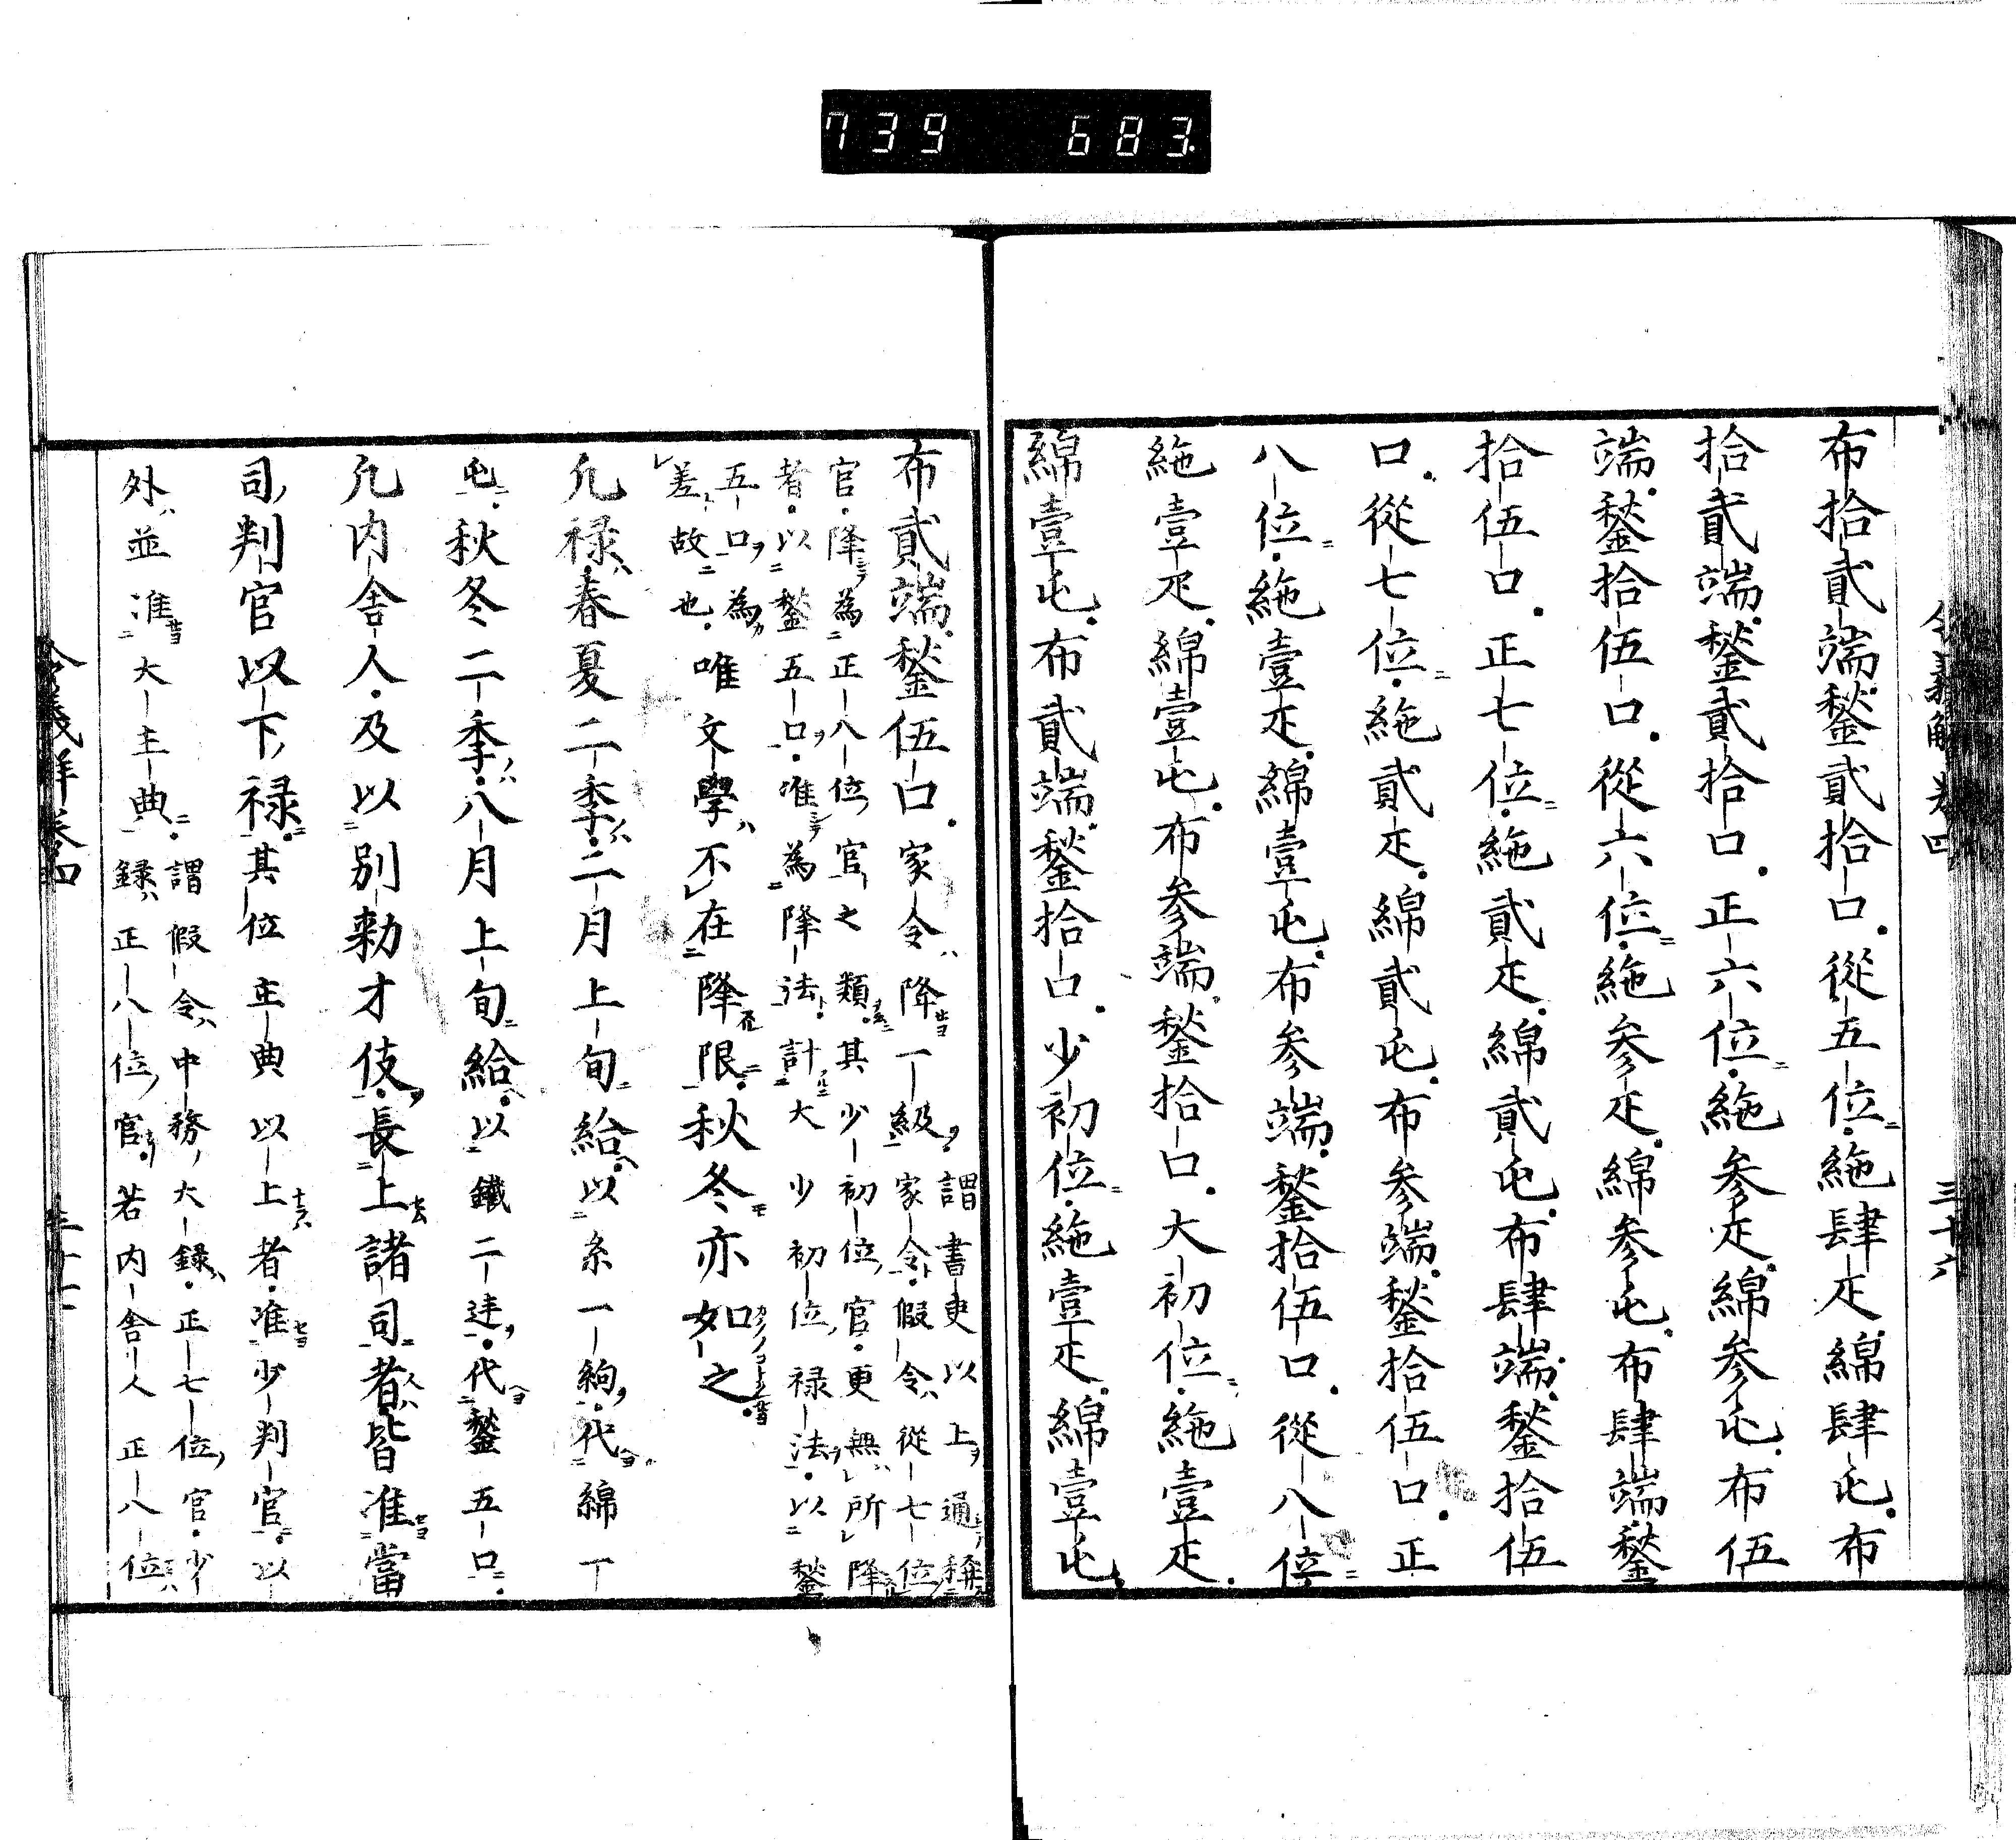 739 683
令義解卷四 三十六
布拾貳端鍫貳拾口從五位絁肆疋綿肆屯布
拾貳端鍫貳拾口正六位絁参疋綿参屯布伍
端鍫拾伍口從六位絁参疋綿参屯布肆端鍫
拾伍口正七位絁貳疋綿貳屯布肆端鍫拾伍
口從七位絁貳疋綿貳屯布参端鍫拾伍口正
八位絁壹疋綿壹屯布参端鍫拾伍口從八位
絁壹疋綿壹屯布参端鍫拾口大初位絁壹疋
綿壹屯布貳端鍫拾口少初位絁壹疋綿壹屯
布貳端鍫伍口家令降一級
謂書吏以上通稱
家令假令從七位
官降為正八位官之類其少初位官更無所降
者以鍫五口唯為降法計大少初位禄法以鍫
五口為
差故也
唯文學不在降限秋冬亦如之
凢禄春夏二季二月上旬給以糸一絇代綿一
屯秋冬二季八月上旬給以鐵二廷代鍫五口
凢内舎人及以別勅才伎長上諸司者皆准當
司判官以下禄其位主典以上者准少判官以
外並准大主典
謂假令中務大録正七位官少
録正八位官若内舎人正八位
令義解卷四